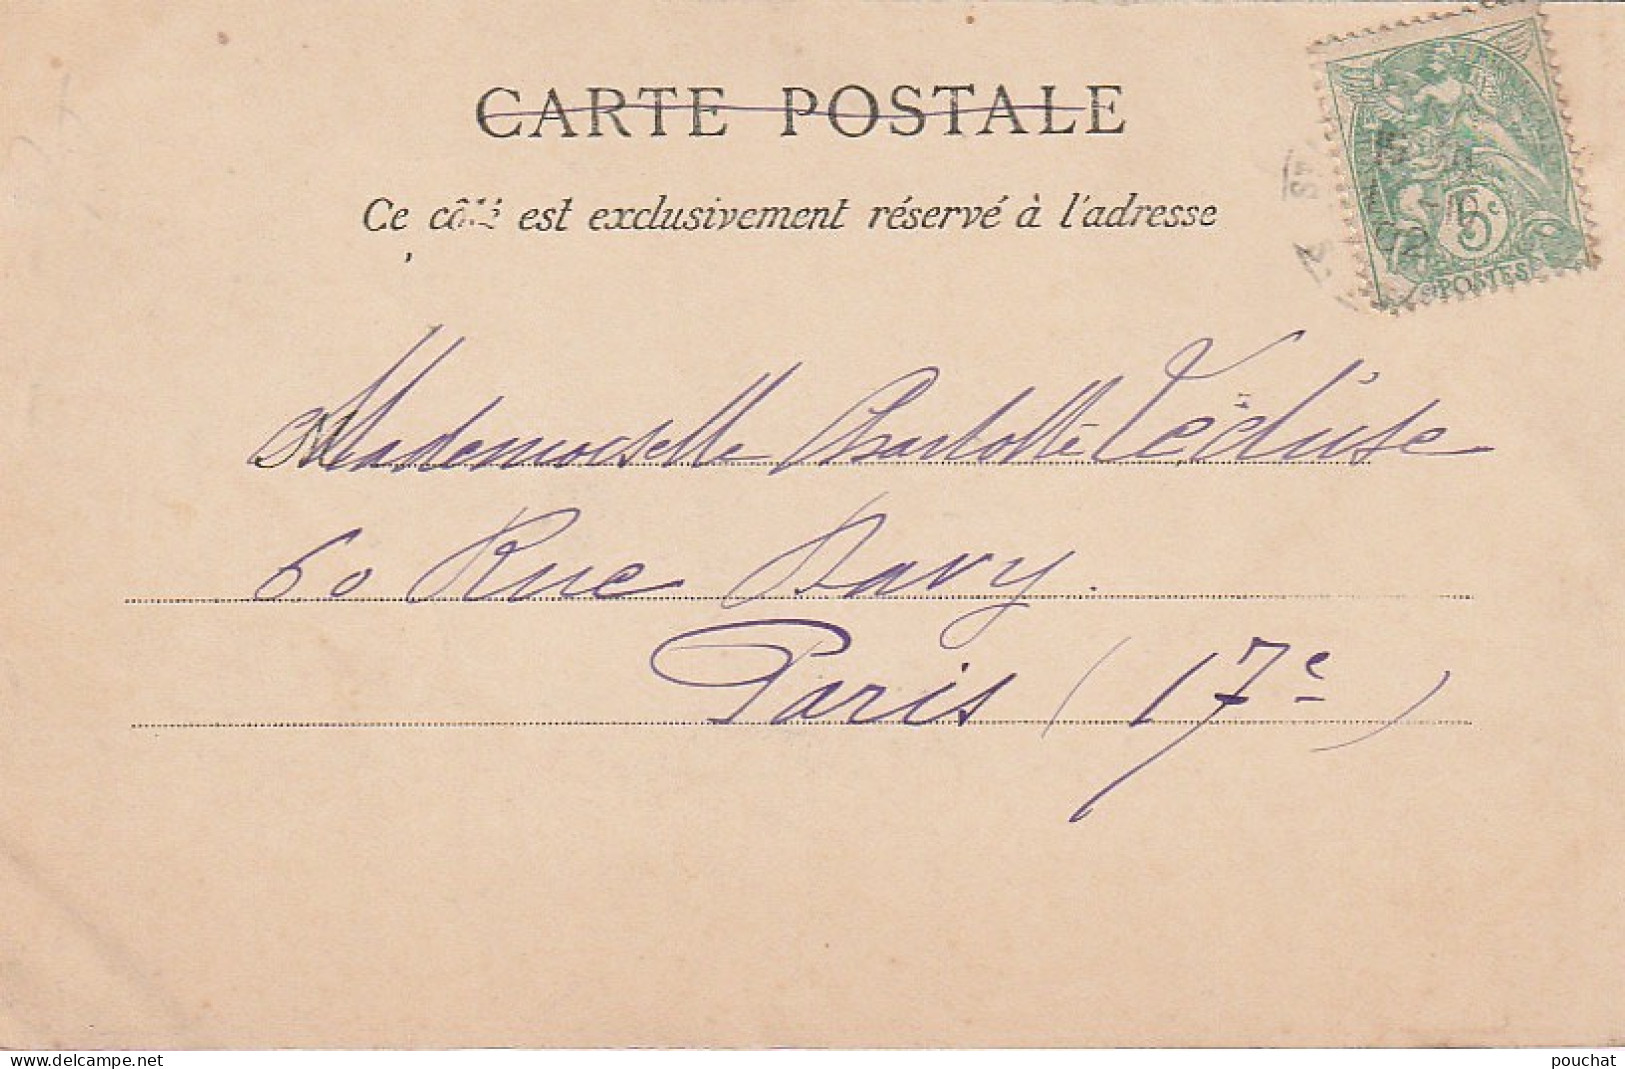 CARTE POSTALE
Ce côté est exclusivement réservé à l'adresse
5c
POSTES
Mademoiselle Charlotte Lécluse
60 Rue Davy.
Paris (17e)
www.delcampe.net
pouchat